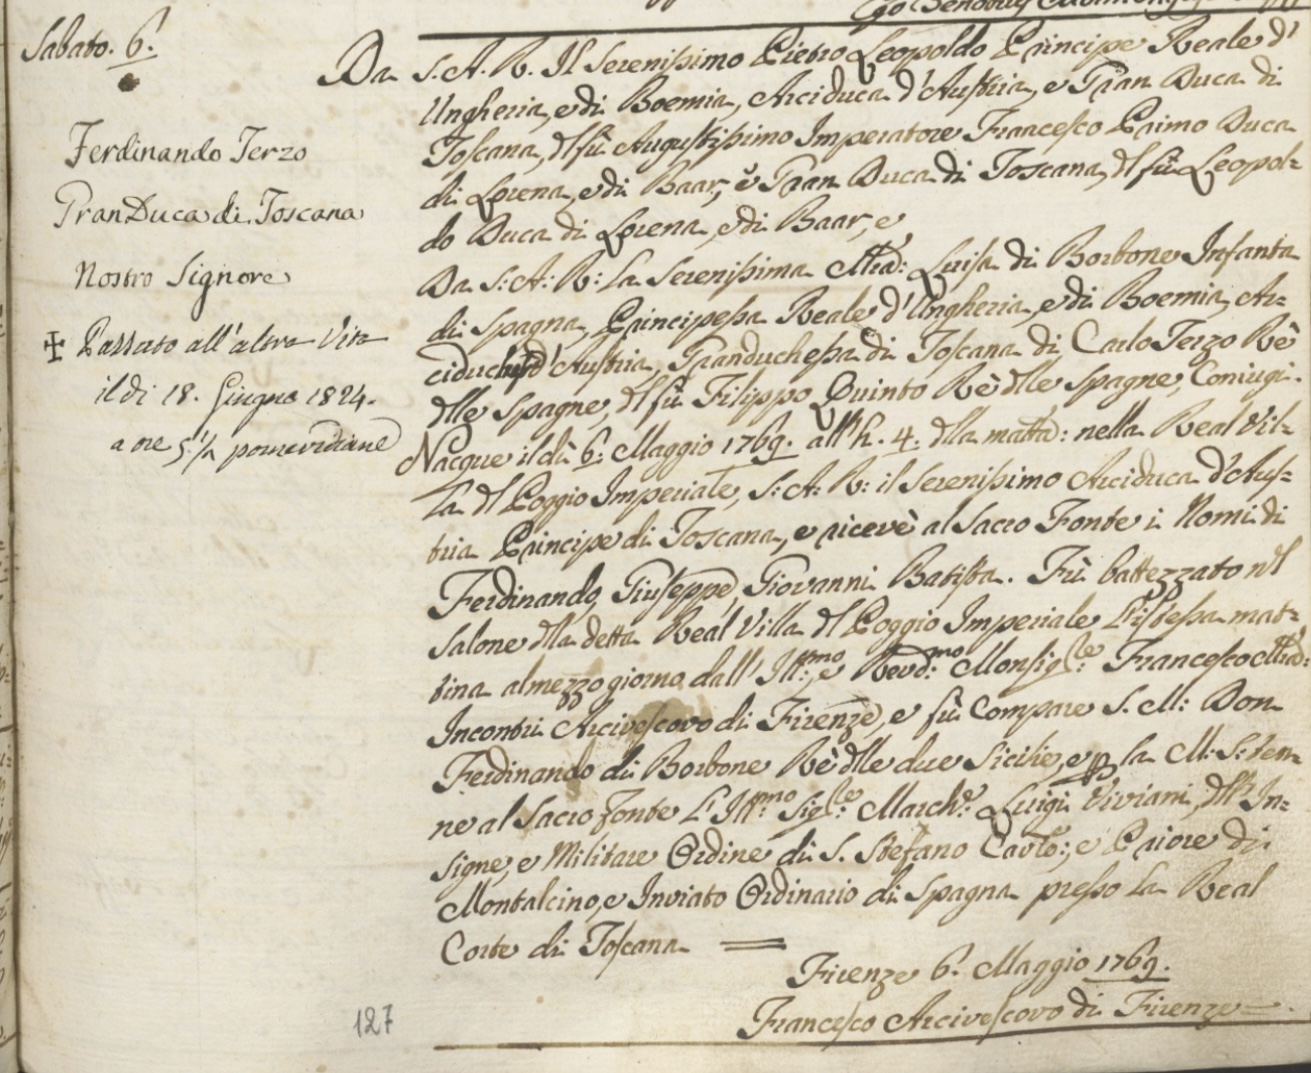 Sabato. 6.
Ferdinando Terzo
GranDuca di Toscana
Nostro Signore
✠ Passato all'altra Vita
il di 18. Giugno 1824.
a ore 5½ pomeridiane
Da S. A. R. Il Serenissimo Pietro Leopoldo Principe Reale d'
Ungheria, e di Boemia, Arciduca d'Austria, e Gran Duca di
Toscana, dl fù Augustissimo Imperatore Francesco Primo Duca
di Lorena, e di Baar, e Gran Duca di Toscana, dl fù Leopol=
do Duca di Lorena, e di Baar, e
Da S: A: R: La Serenissima Ma: Luisa di Borbone Infanta
di Spagna, Principessa Reale d'Ungheria, e di Boemia, Ar=
ciduchssa d'Austria, Granduchessa di Toscana di Carlo Terzo Rè
dlle Spagne, dl fù Filippo Quinto Rè dlle Spagne, Coniugi.
Nacque il dì 6: Maggio 1769. all'h. 4. dlla matta: nella Real Vil=
la dl Poggio Imperiale, S: A: R: il Serenissimo Arciduca d'Aus=
tria Principe di Toscana, e ricevè al Sacro Fonte i Nomi di
Ferdinando, Giuseppe, Giovanni Batista. Fù battezzato nl
Salone dlla detta Real Villa dl Poggio Imperiale l'istessa mat=
tina al mezzo giorno dall' Illmo:, e Revdmo: Monsigle: Francesco
Incontri Arcivescovo di Firenze, e fù Compare S. M: Don
Ferdinando di Borbone Rè dlle due Sicilie, e p la M: S: ten=
ne al Sacro fonte L'Illmo: Sigle: Marche: Luigi Viviani, dll'In=
signe, e Militare Ordine di S. Stefano e Priore di
Montalcino, e Inviato Ordinario di Spagna presso La Real
Corte di Toscana =
Firenze 6. Maggio 1769.
Francesco Arcivescovo di Firenze =
127